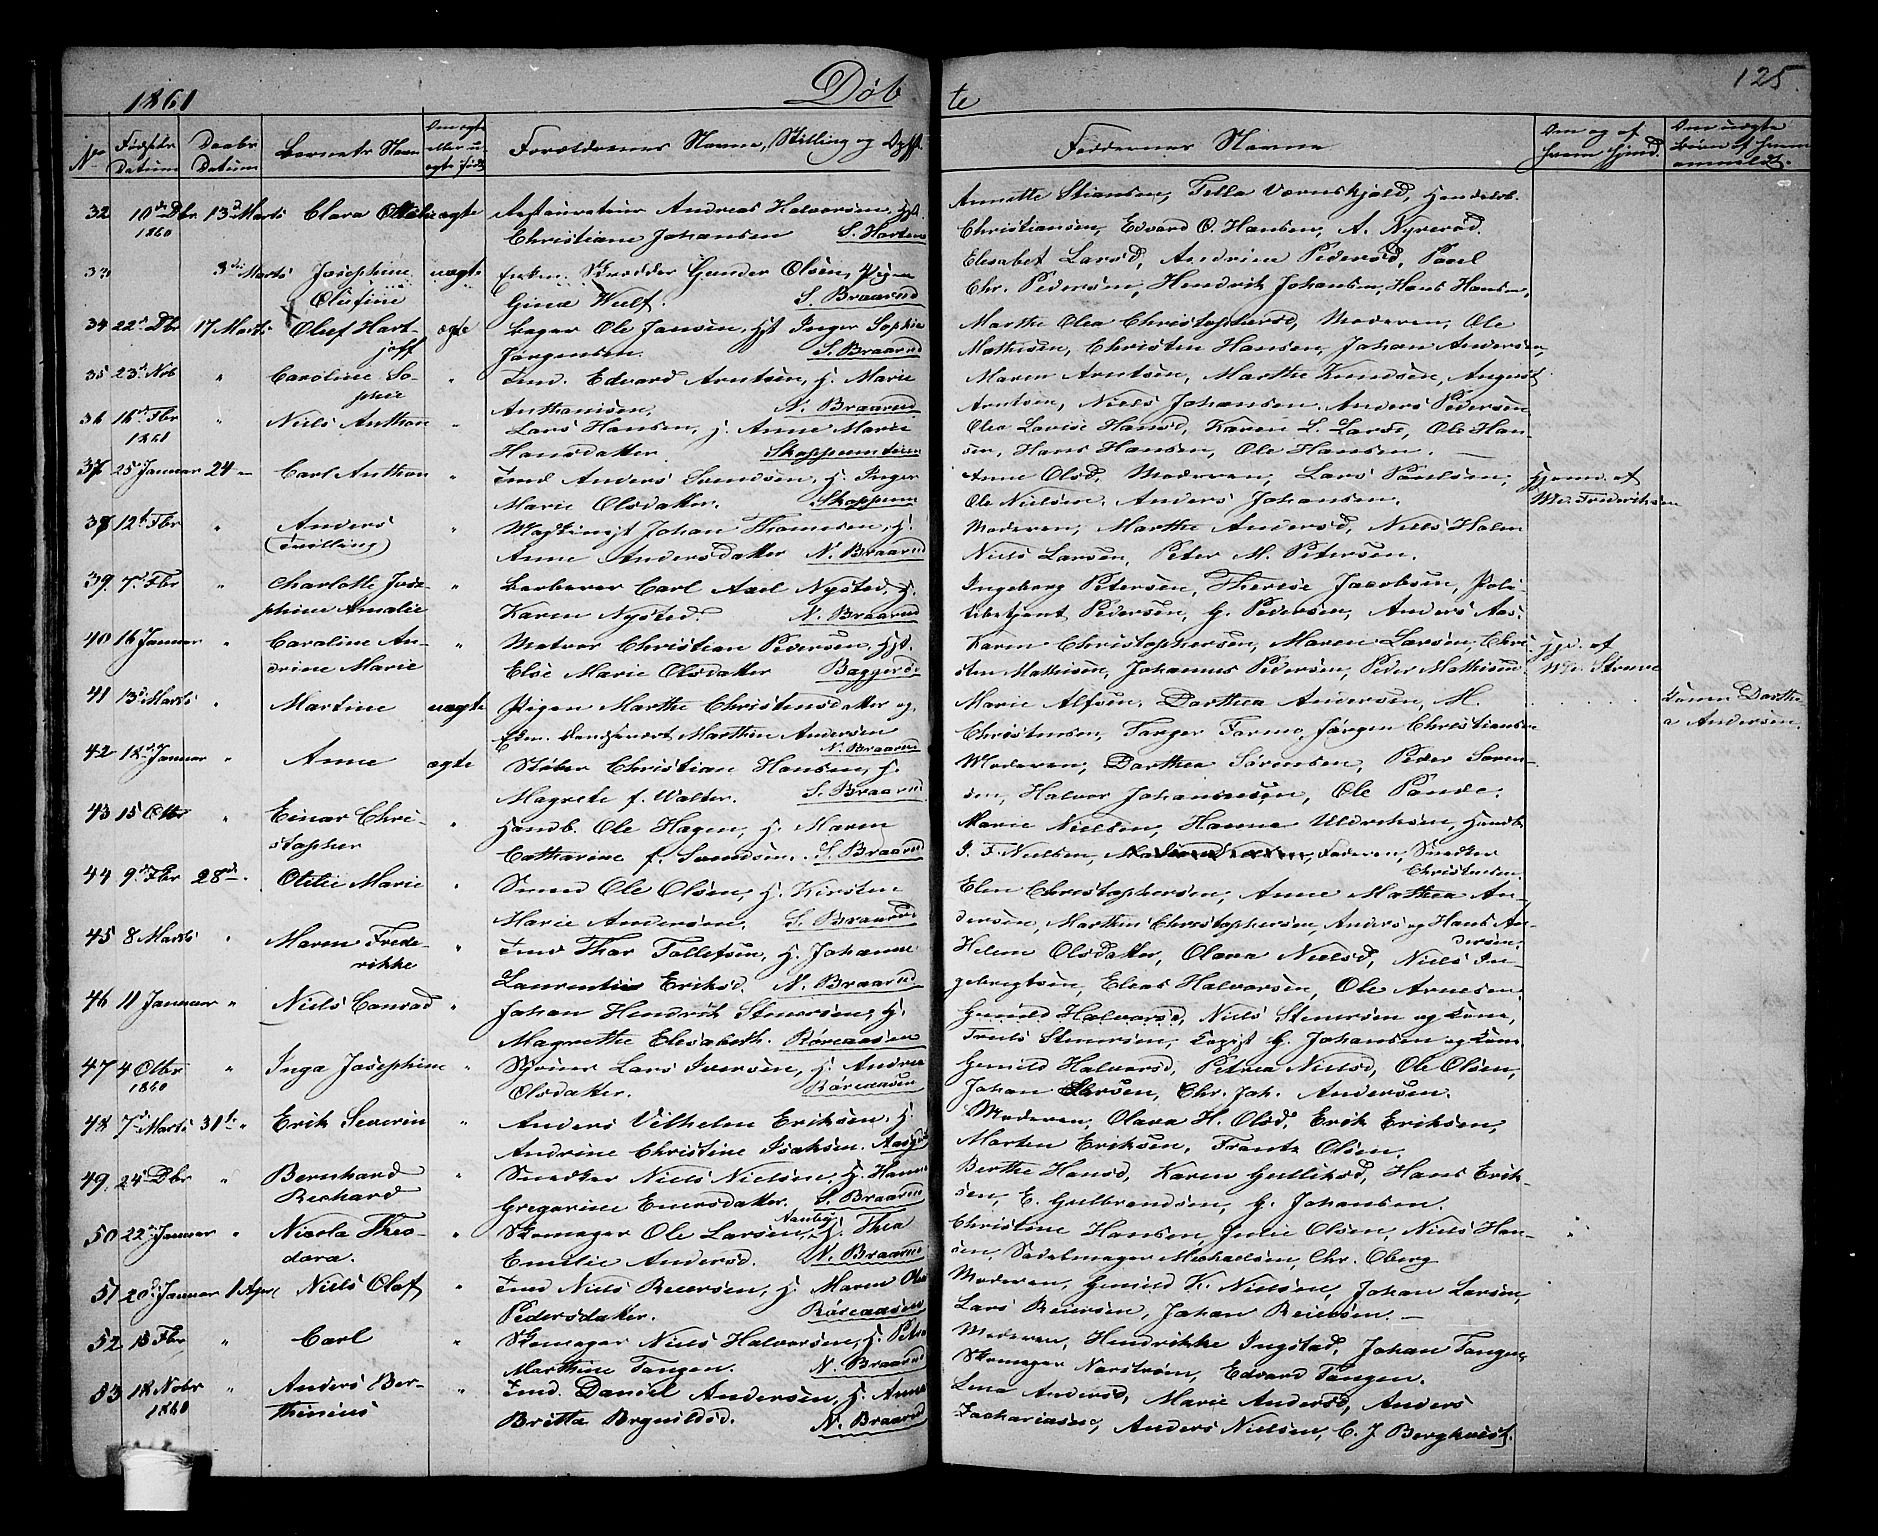 1861 Døbte 125.
No Fødsels Datum Daabs Datum Barnets Navn Om ægte eller uægte født Forældrenes Navne, Stilling og
Faddernes Navne
32 10de Dbr 1860 13de Marts Clara ægte Restaurateur Andreas Halvorsen,
Christiane Johansen S. Horten
Annette Stiansen, Tella Værnskjold,
Christiansen, Edvard O. Hansen, A. Nyrerød.
33 3die Marts Josephine Olufine uægte Gunder Olsen, Pigen
Gina Wulf. S. Braarud
Elisabet Larsd, Andrine Pedersd, Poul
Chr. Pedersen, Hendrik Johansen, Hans Hansen,
34 22de Dbr 17 Marts Oluf Hart- ægte Bager Ole Jansen, Inger Sophie
Jørgensen. S. Braarud
Marthe Olea Christophersd, Moderen, Ole
Mathisen, Christen Hansen, Johan Andersen,
35 23de Nob " Caroline So- phie " Ind. Edvard Arntsen, H. Marie
Anthonisen. N. Braarud
Maren Arntsen, Marthe Knudsen, August
Arntsen, Niels Johansen, Anders Pedersen
36 16de Fbr 1861 " Niels Anthon " Lars Hansen, H. Anne Marie
Hansdatter
Olea Lovise Hansd, Karen L. Larsd, Ole Han-
sen, Hans Hansen, Ole Hansen. —
37 25 Januar 24 Carl Anthon " Ind Anders Svendsen, H. Inger
Marie Olsdatter. Skoppum
Anne Olsd, Moderen, Lars Paulsen,
Ole Nielsen, Anders Johansen.
Hjemd. af Md. Frederiksen
38 12te Fbr " Anders (Tvilling) " Johan Thomesen, H.
Anne Andersdatter N. Braarud
Moderen, Marthe Andersd, Niels Holm
Niels Larsen, Peter M. Petersen.
39. 7de Fbr " Charlotte Jose- phine Amalie " Barberer Carl Axel Nysted, H.
Karen Nysted. N. Braarud
Ingeborg Petersen, Therese Jacobsen, Poli-
tibetjent Pedersen, G. Pedersen, Anders Aas.
40 16 Januar " Caroline An- drine Marie " Matros Christian Pedersen,
Else Marie Olsdatter
Karen Christophersen, Maren Larsen, Chri-
sten Mathisen, Johannes Pedersen, Peder Mathisen
Hjd. af Md. Struve
41 13de Marts " Martine uægte Pigen Marthe Christensdatter og
Marthin Andersen N. Braarud
Marie Alfsen, Dorthea Andersen, M.
Christensen, Torger Tormo, Jørgen Christiansen
Konen Dorthe- a Andersen.
42 18de Januar " Anne ægte Støber Christian Hansen, H.
Magrete f. Walter. S. Braarud
Moderen, Dorthea Sørensen, Peder Soren-
sen, Halvor Johannesen, Ole Pande.
43 15 Otbr " Einar Chri- stopher " Handb. Ole Hagen, H. Maren
Catharine f. Svendsen. S. Braarud
Marie Nielsen, Hanna Uldriksen, Handb.
J. F. Nielsen, Faderen, Snedker Christensen
44 9de Fbr 28de Otilie Marie " Smed Ole Olsen, H. Kirsten
Marie Andersen. S. Braarud
Elen Christophersen, Anne Mathea An-
dersen, Marthin Christophersen, Anders og Hans An- dersen.
45 8 Marts " Maren Frede- rikke " Ind Thor Tollefsen, H. Johanne
Laurentia Eriksd. N. Braarud
Helene Olsdatter, Olava Nielsd, Niels In-
gebrigtsen, Elias Halvorsen, Ole Arnesen.
46 11 Januar " Niels Conrad " Johan Hendrik Stenersen, H.
Magrethe Elisabeth. Røreaasen
Gunild Halvorsd, Niels Stenersen og Kone,
Truls Stenersen, G. Johansen og Kone
47 4 Otbr 1860 " Inga Josephine " Lars Iversen, H. Andrea
Olsdatter. Røreaasen
Gunild Halvorsd, Petrea Nielsd, Ole Olsen,
Johan Chr. Joh. Andersen.
48 7de Marts 31te " Erik Severin " Anders Vilhelm Eriksen, H.
Andrine Christine Isaksen.
Moderen, Olava H. Olsd, Erik Eriksen,
Morten Eriksen, Frantz Olsen.
49. 24 Dbr " Bernhard Richard " Snedker Niels Nielsen, H. Hanne
Gregorine Enersdatter. S. Braarud
Berthe Hansd, Karen Gulliksd, Hans Erik-
sen, E. Gulbrandsen, G. Johansen.
50 22de Januar " Nicola Theo- dora. " Skomager Ole Larsen, H. Thea
Emilie Andersd. N. Braarud
Christine Hansen, Julie Olsen, Niels Han-
sen, Sadelmager Michaelsen, Chr. Oberg
51 20de Januar 1 April Niels Olaf " Ind Niels Reiersen, H. Maren
Pedersdatter. Røreaasen
Moderen, Gunild K. Nielsen, Johan Larsen,
Lars Reiersen, Johan Reiersen. —
52 18 Fbr " Carl " Skomager Niels Halvorsen, H. Petra
Marthine Tangen. N. Braarud
Moderen, Hendrikke Ingstad, Johan Tangen,
Skomager Norstrøm, Edvard Tangen.
53 18 Nobr 1860 " Anders Ber- thinius " Ind. Daniel Andersen, H. Anne
Britta Brynildsd. N. Braarud
Lena Andersd, Marie Andersd, Anders
Zachariasen, Anders Nielsen, C. J. Berghvist.